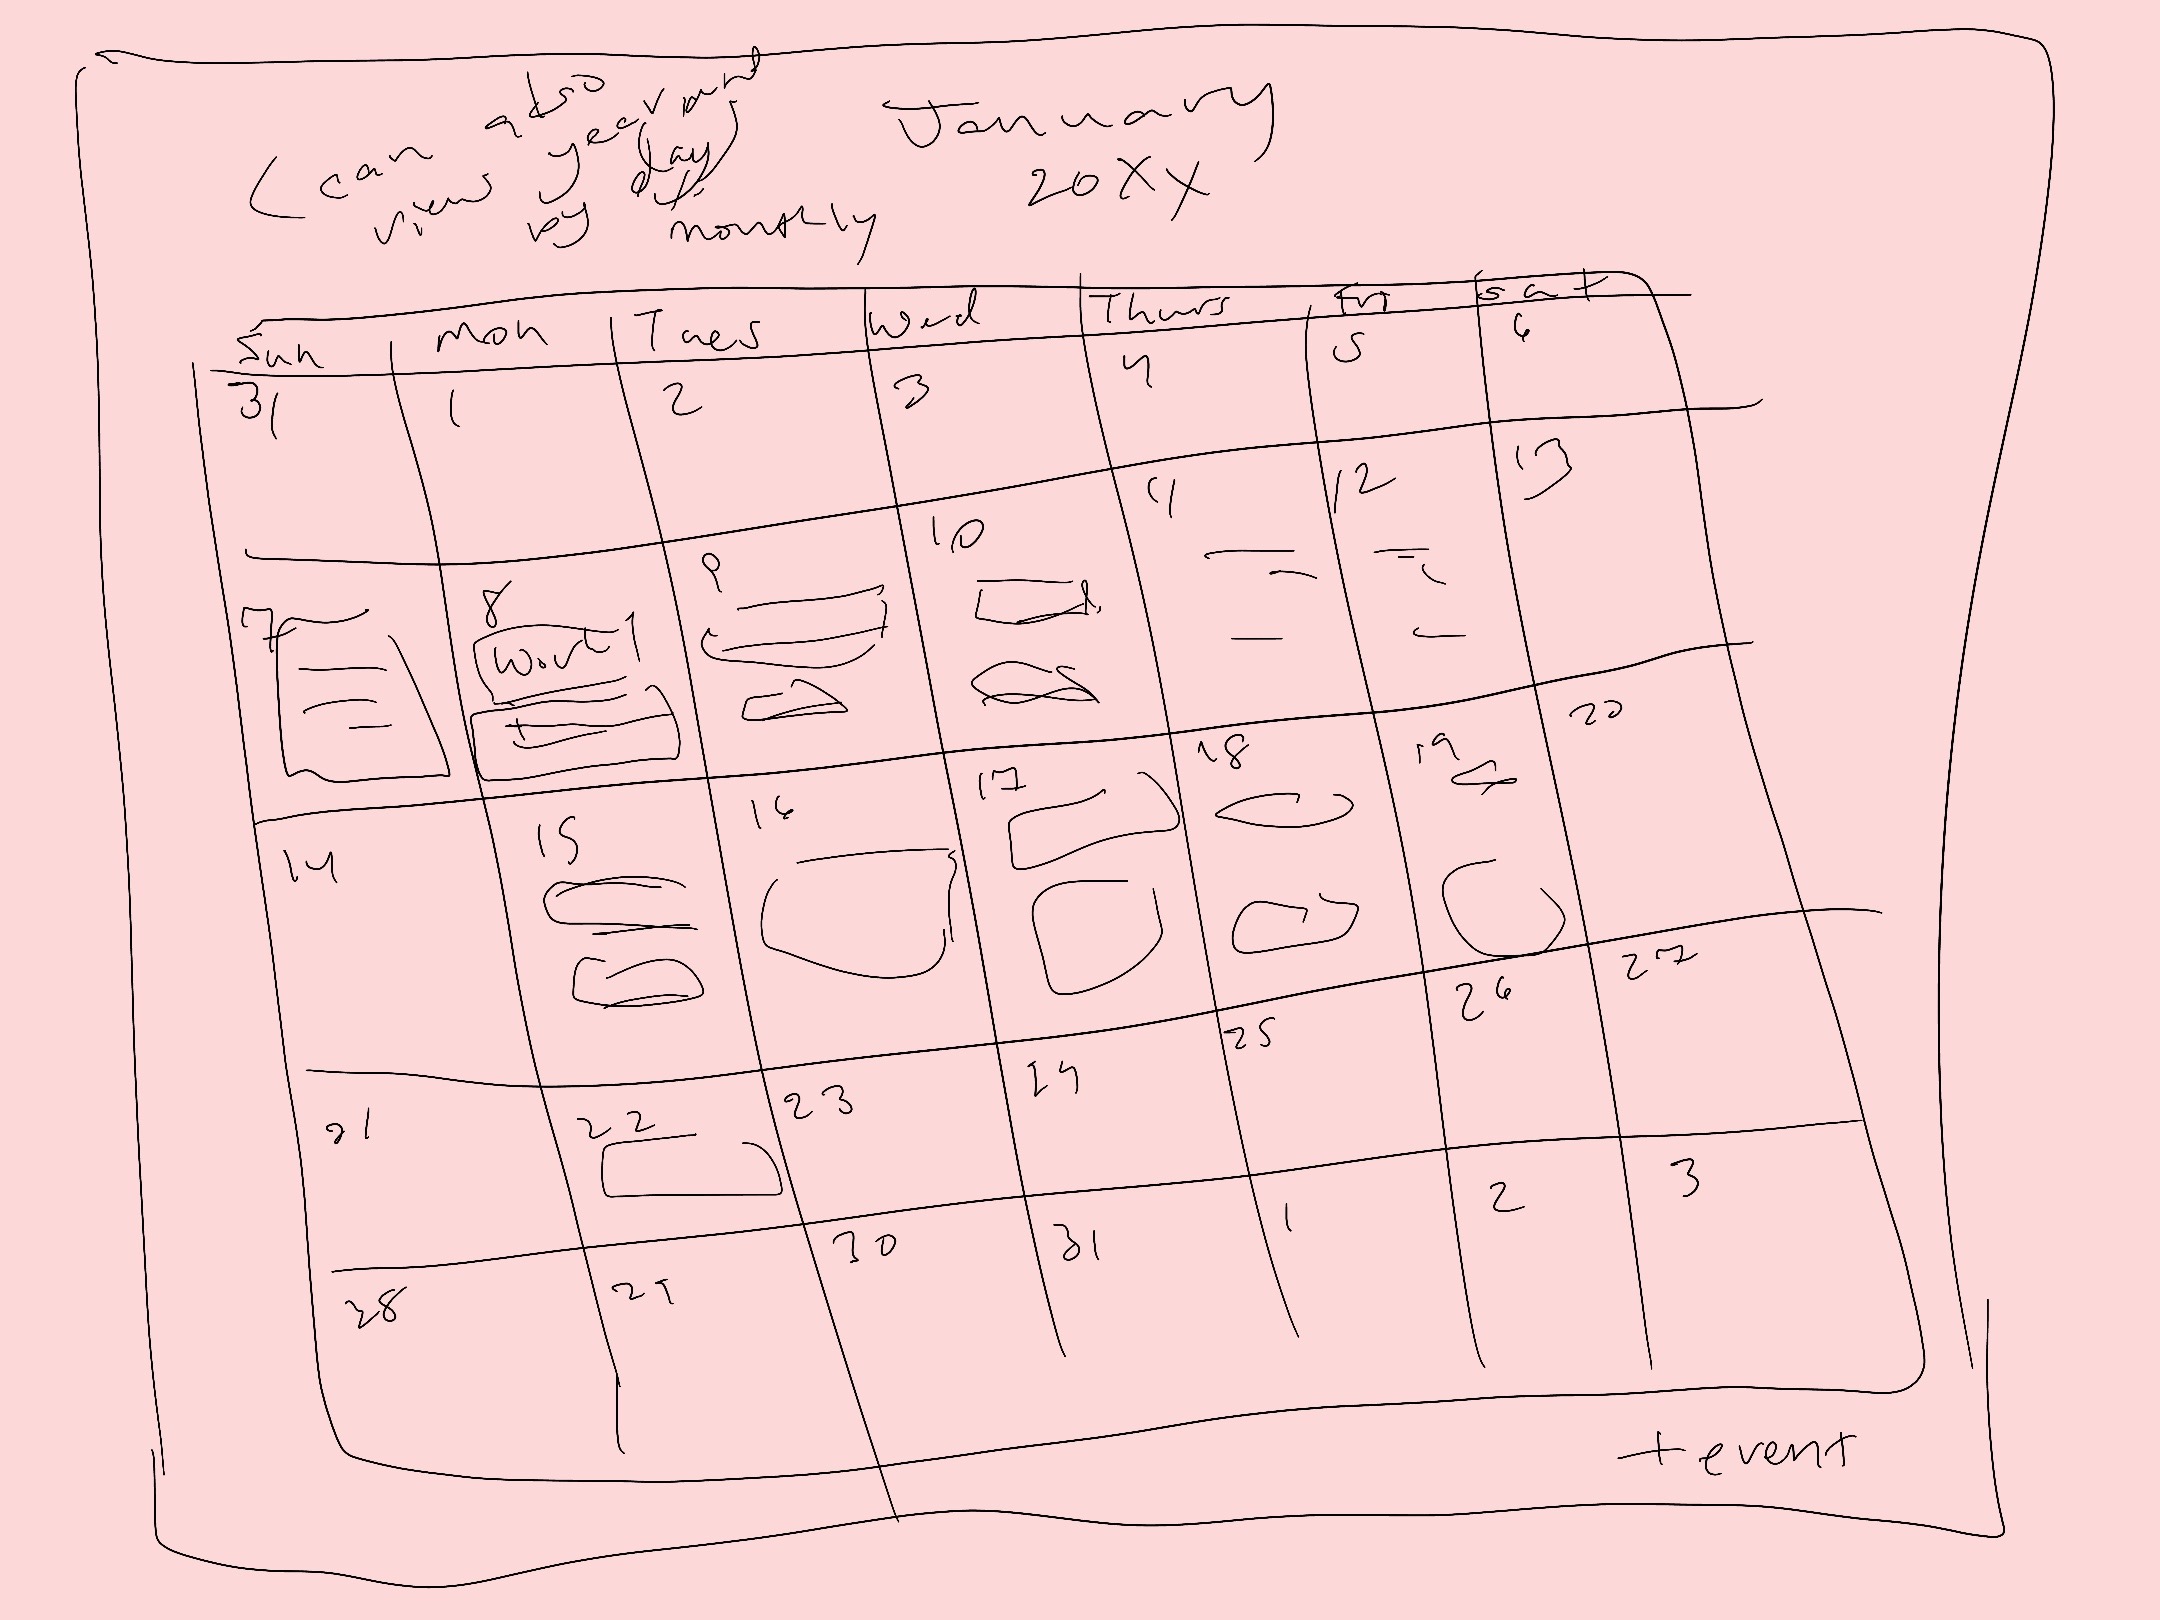 (can also
view year and
by day)
monthly
January
20XX
Sun Mon Tues Wed Thurs Fri Sat
31 1 2 3 4 5 6
7 8 9 10 11 12 13
Work 1
14 15 16 17 18 19 20
21 22 23 24 25 26 27
28 29 30 31 1 2 3
+ event